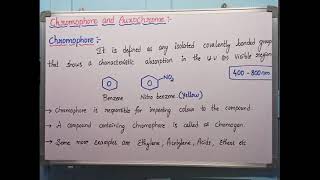 Chromophore and Auxochrome :-
Chromophore :-
It is defined as any isolated covalently bonded group
that shows a characteristic absorption in the U.V or visible region
400 - 800 nm
NO₂
Benzene Nitro benzene (Yellow)
→ Chromophore is responsible for imparting colour to the compound.
→ A compound containing chromophore is called as chromogen.
→ Some more examples are Ethylene, Acetylene, Acids, Ethers etc